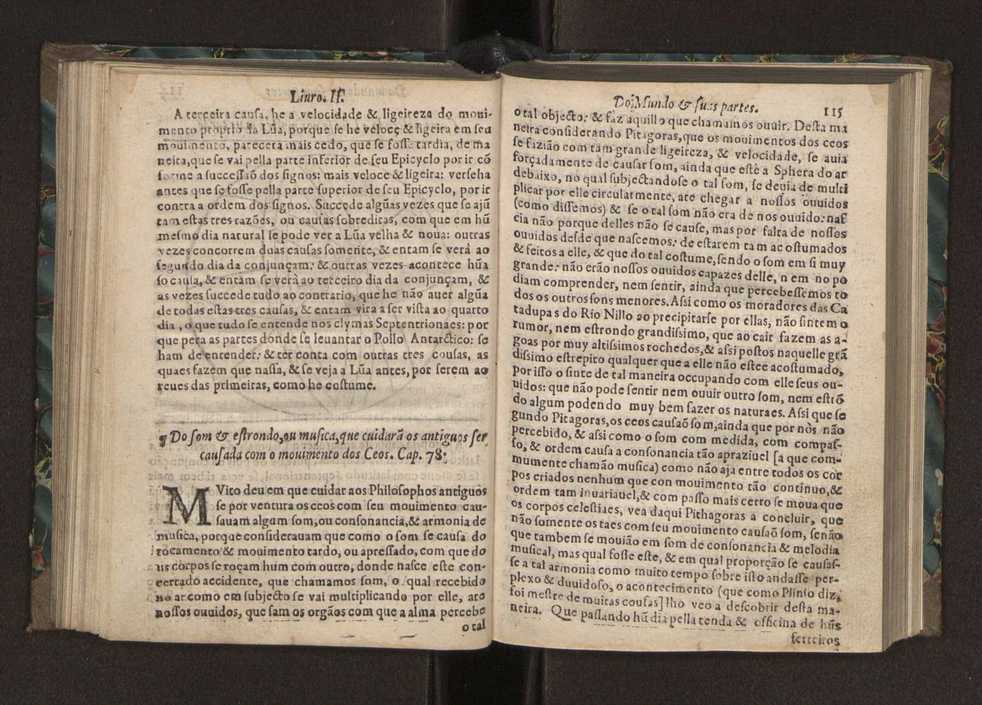 Liuro. II.
A terceira causa, he a velocidade & ligeireza do moui-
mento proprio da Lũa, porque se he veloce & ligeira em seu
mouimento, parecera mais cedo, que se fosse tardia, de ma
neira, que se vai pella parte inferior de seu Epicyclo por ir cõ
forme a successaõ dos signos: mais veloce & ligeira: verseha
antes que se fosse pella parte superior de seu Epiciclo, por ir
contra a ordem dos signos. Succede algũas vezes que se ajũ
tam estas tres razões, ou causas sobreditas, com que em hũ
mesmo dia natural se pode ver a Lũa velha & noua: outras
vezes concorrem duas causas somente, & entam se verà ao
segundo dia da conjunçam: & outras vezes acontece hũa
so causa, & entam se verà ao terceiro dia da conjunçam, &
as vezes succede tudo ao contrario, que he não auer algũa
de todas estas tres causas, & entam vira a ser vista ao quarto
dia, o que tudo se entende nos clymas Septentrionaes: por
que pera as partes donde se leuantar o Pollo Antarctico: se
ham de entender: & ter conta com outras tres cousas, as
quaes fazem que nassa, & se veja a Lũa antes, por serem ao
reues das primeiras, como he costume.
¶ Do som & estrondo, ou musica, que cuidarã os antiguos ser
causada com o mouimento dos Ceos. Cap. 78:
MVito deu em que cuidar aos Philosophos antiguos
se por ventura os ceos com seu mouimento cau-
sauam algum som, ou consonancia, & armonia de
musica, porque considerauam que como o som se causa do
rocamento & mouimento tardo, ou apressado, com que do
us corpos se roçam hum com outro, donde nasce este con-
certado accidente, que chamamos som, o qual recebido
no ar como em subjecto se vai multiplicando por elle, ate
nossos ouuidos, que sam os orgãos com que a alma percebe
o tal
Do Mundo & suas partes. 115
o tal objecto: & faz aquillo que chamamos ouuir. Desta ma
neira considerando Pitagoras, que os mouimentos dos ceos
se fazião com tam grande ligeireza, & velocidade, se auia
forçadamente de causar som, ainda que estè a Sphera do ar
debaixo, no qual subjectandose o tal som, se deuia de multi
plicar por elle circularmente, ate chegar a nossos ouuidos
(como dissemos) & se o tal som não era de nos ouuido: nas
cia não porque delles não se cause, mas por falta de nossos
ouuidos desde que nascemos: de estarem tam acostumados
& feitos a elle, & que do tal costume, sendo o som em si muy
grande: não erão nossos ouuidos capazes delle, nem no po
diam comprender, nem sentir, ainda que percebessemos to
dos os outros sons menores. Asi como os moradores das Ca
tadupas do Rio Nillo ao precipitarse por ellas, não sintem o
rumor, nem estrondo grandissimo, que ao cair fazem as a-
goas por muy altissimos rochedos, & assi postos naquelle grã
dissimo estrepito qualquer que a elle não estee acostumado,
por isso o sinte de tal maneira occupando com elle seus ou-
uidos: que não pode sentir nem ouuir outro som, nem estrõ
do algum podendo muy bem fazer os naturaes. Assi que se
gundo Pitagoras, os ceos causaõ som, ainda que por nòs não
percebido, & assi como o som com medida, com compas-
so, & ordem causa a consonancia tão apraziuel [a que com-
mumente chamão musica] como não aja entre todos os cor
pos criados nenhum que con mouimento tão continuo, &
ordem tam inuariauel, & com passo mais certo se moua que
os corpos celestiaes, vea daqui Pithagoras a concluir, que
não somente os taes com seu mouimento causaõ som, senão
que tambem se mouião em som de consonancia & melodia
musical, mas qual fosse este, & em qual proporção se causas-
se a tal armonia como muito tempo sobre isto andasse per-
plexo & duuidoso, o acontecimento (que como Plinio diz,
foi mestre de muitas cousas] lho veo a descobrir desta ma-
neira. Que passando hũ dia pella tenda & officina de hũs
ferreiros